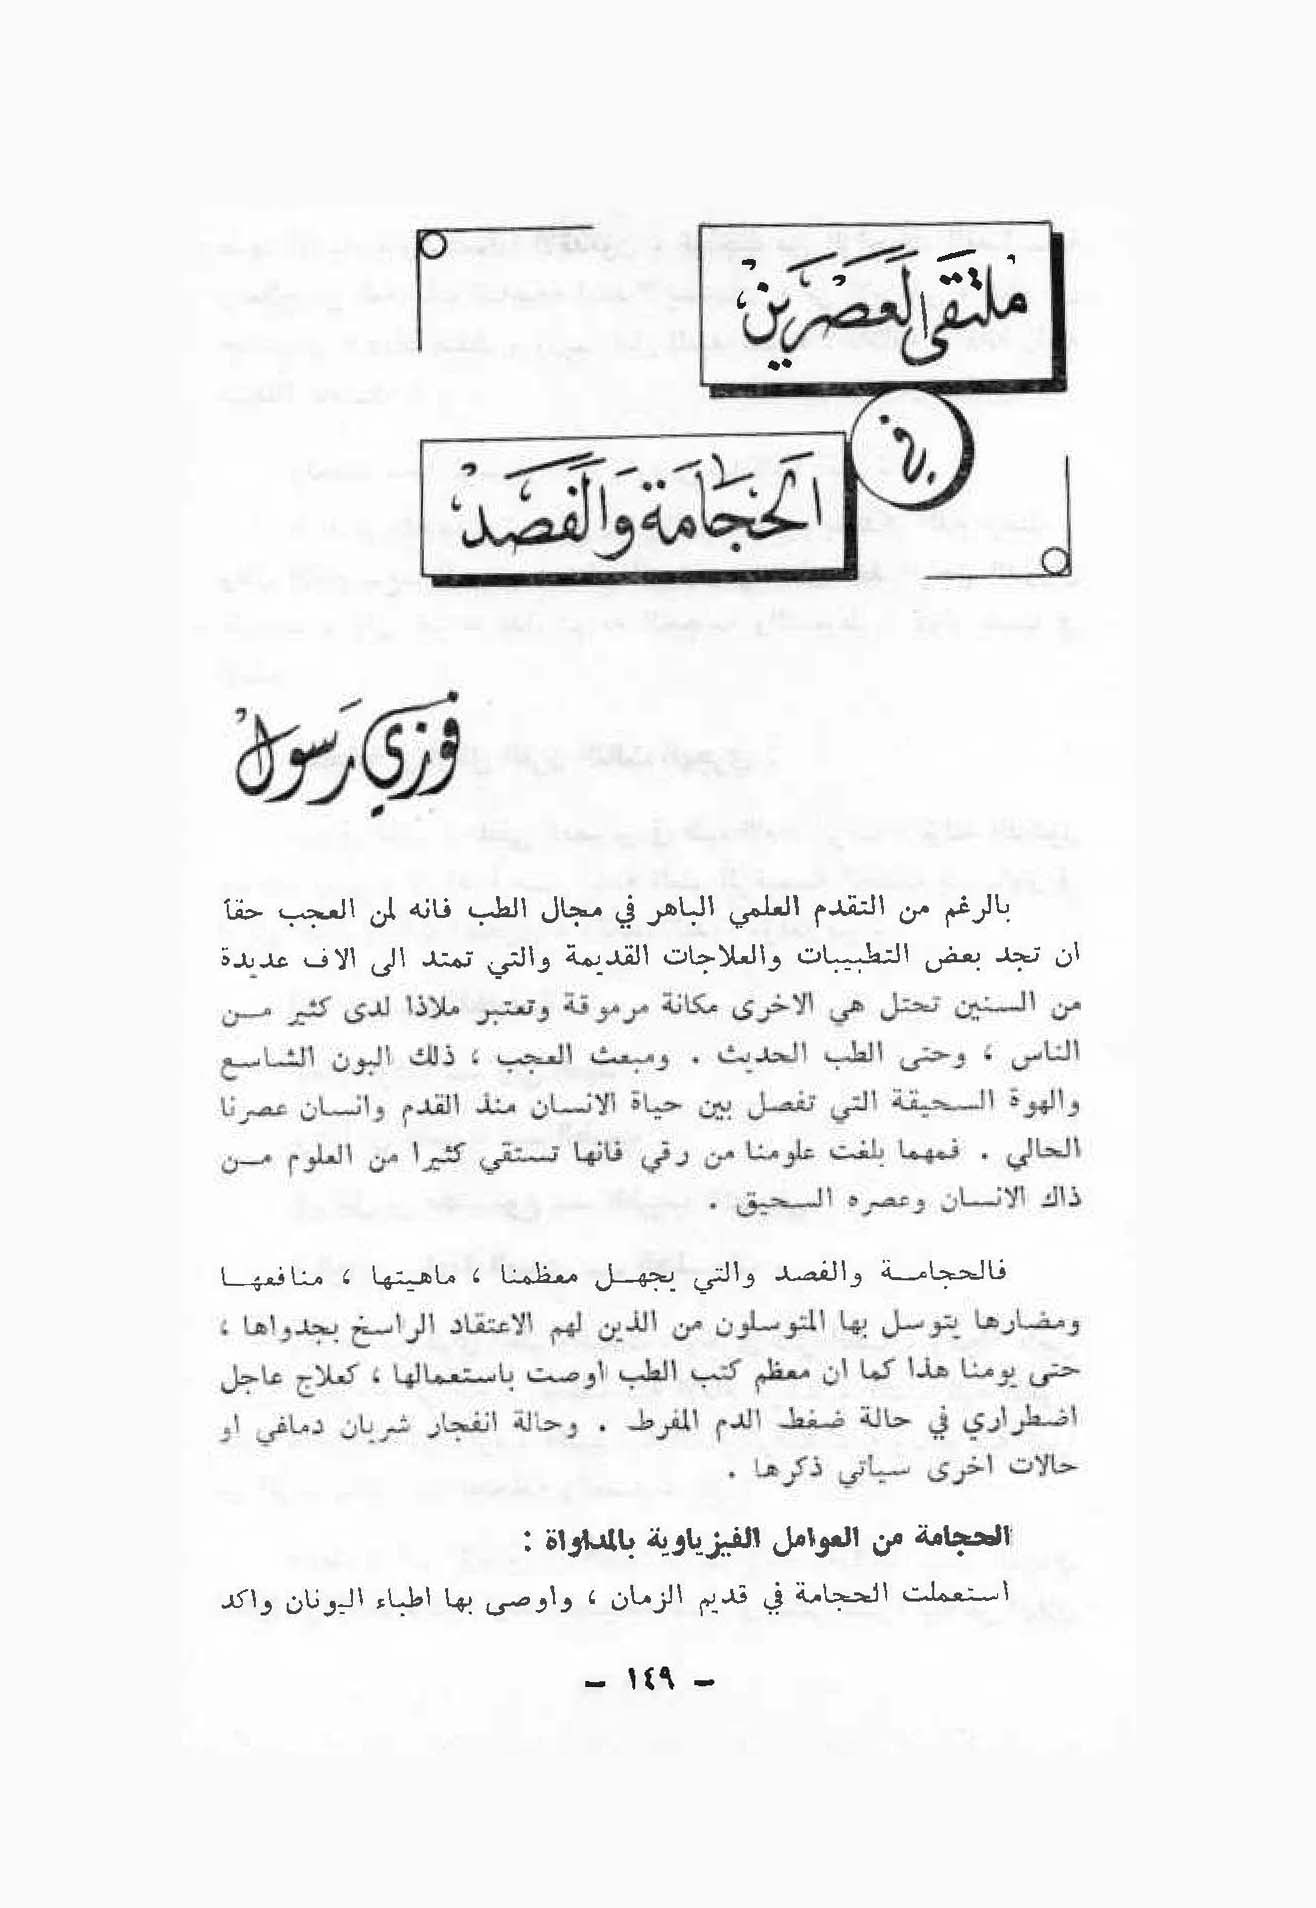 ملتقى العصرين
في
الحجامة والفصد
فوزي رسول
بالرغم من التقدم العلمي الباهر في مجال الطب فانه لمن العجب حقاً
ان تجد بعض التطبيبات والعلاجات القديمة والتي تمتد الى الاف عديدة
من السنين تحتل هي الاخرى مكانة مرموقة وتعتبر ملاذا لدى كثير مـن
الناس ، وحتى الطب الحديث . ومبعث العجب ، ذلك البون الشاسع
والهوة السحيقة التي تفصل بين حياة الانسان منذ القدم وانسان عصرنا
الحالي . فمهما بلغت علومنا من رقي فانها تستقي كثيرا من العلوم مـن
ذاك الانسان وعصره السحيق .
فالحجامـة والفصد والتي يجهـل معظمنا ، ماهيتها ، منافعهـا
ومضارها يتوسل بها المتوسلون من الذين لهم الاعتقاد الراسخ بجدواها ،
حتى يومنا هذا كما ان معظم كتب الطب اوصت باستعمالها ، كعلاج عاجل
اضطراري في حالة ضغط الدم المفرط . وحالة انفجار شريان دماغي او
حالات اخرى سياتي ذكرها .
الحجامة من العوامل الفيزياوية بالمداواة :
استعملت الحجامة في قديم الزمان ، واوصى بها اطباء اليونان واكد
– ١٤٩ –